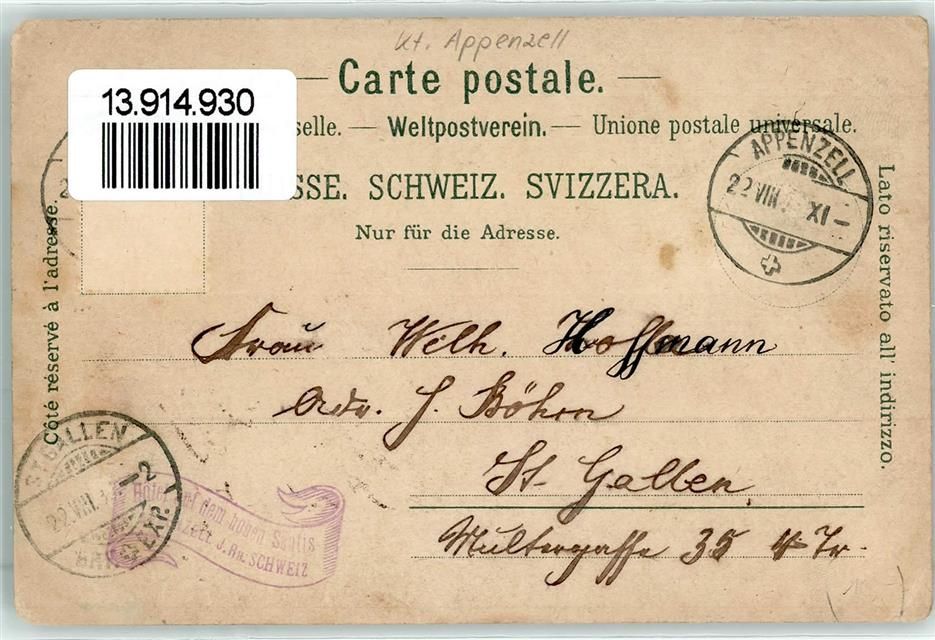 Kt. Appenzell
Carte postale.
13.914.930
selle. — Weltpostverein. — Unione postale universale.
SSE. SCHWEIZ. SVIZZERA.
Nur für die Adresse.
APPENZELL
22 VIII XI –
Côté réservé à l'adresse.
Lato riservato all' indirizzo.
Frau Welh. Hoffmann
Adr. J. Böhrn
St. Gallen
Multergasse 35 4 Tr.
ST. GALLEN
22. VIII. – 2
EXP.
Hotel auf dem hohen Säntis
J. RH. SCHWEIZ